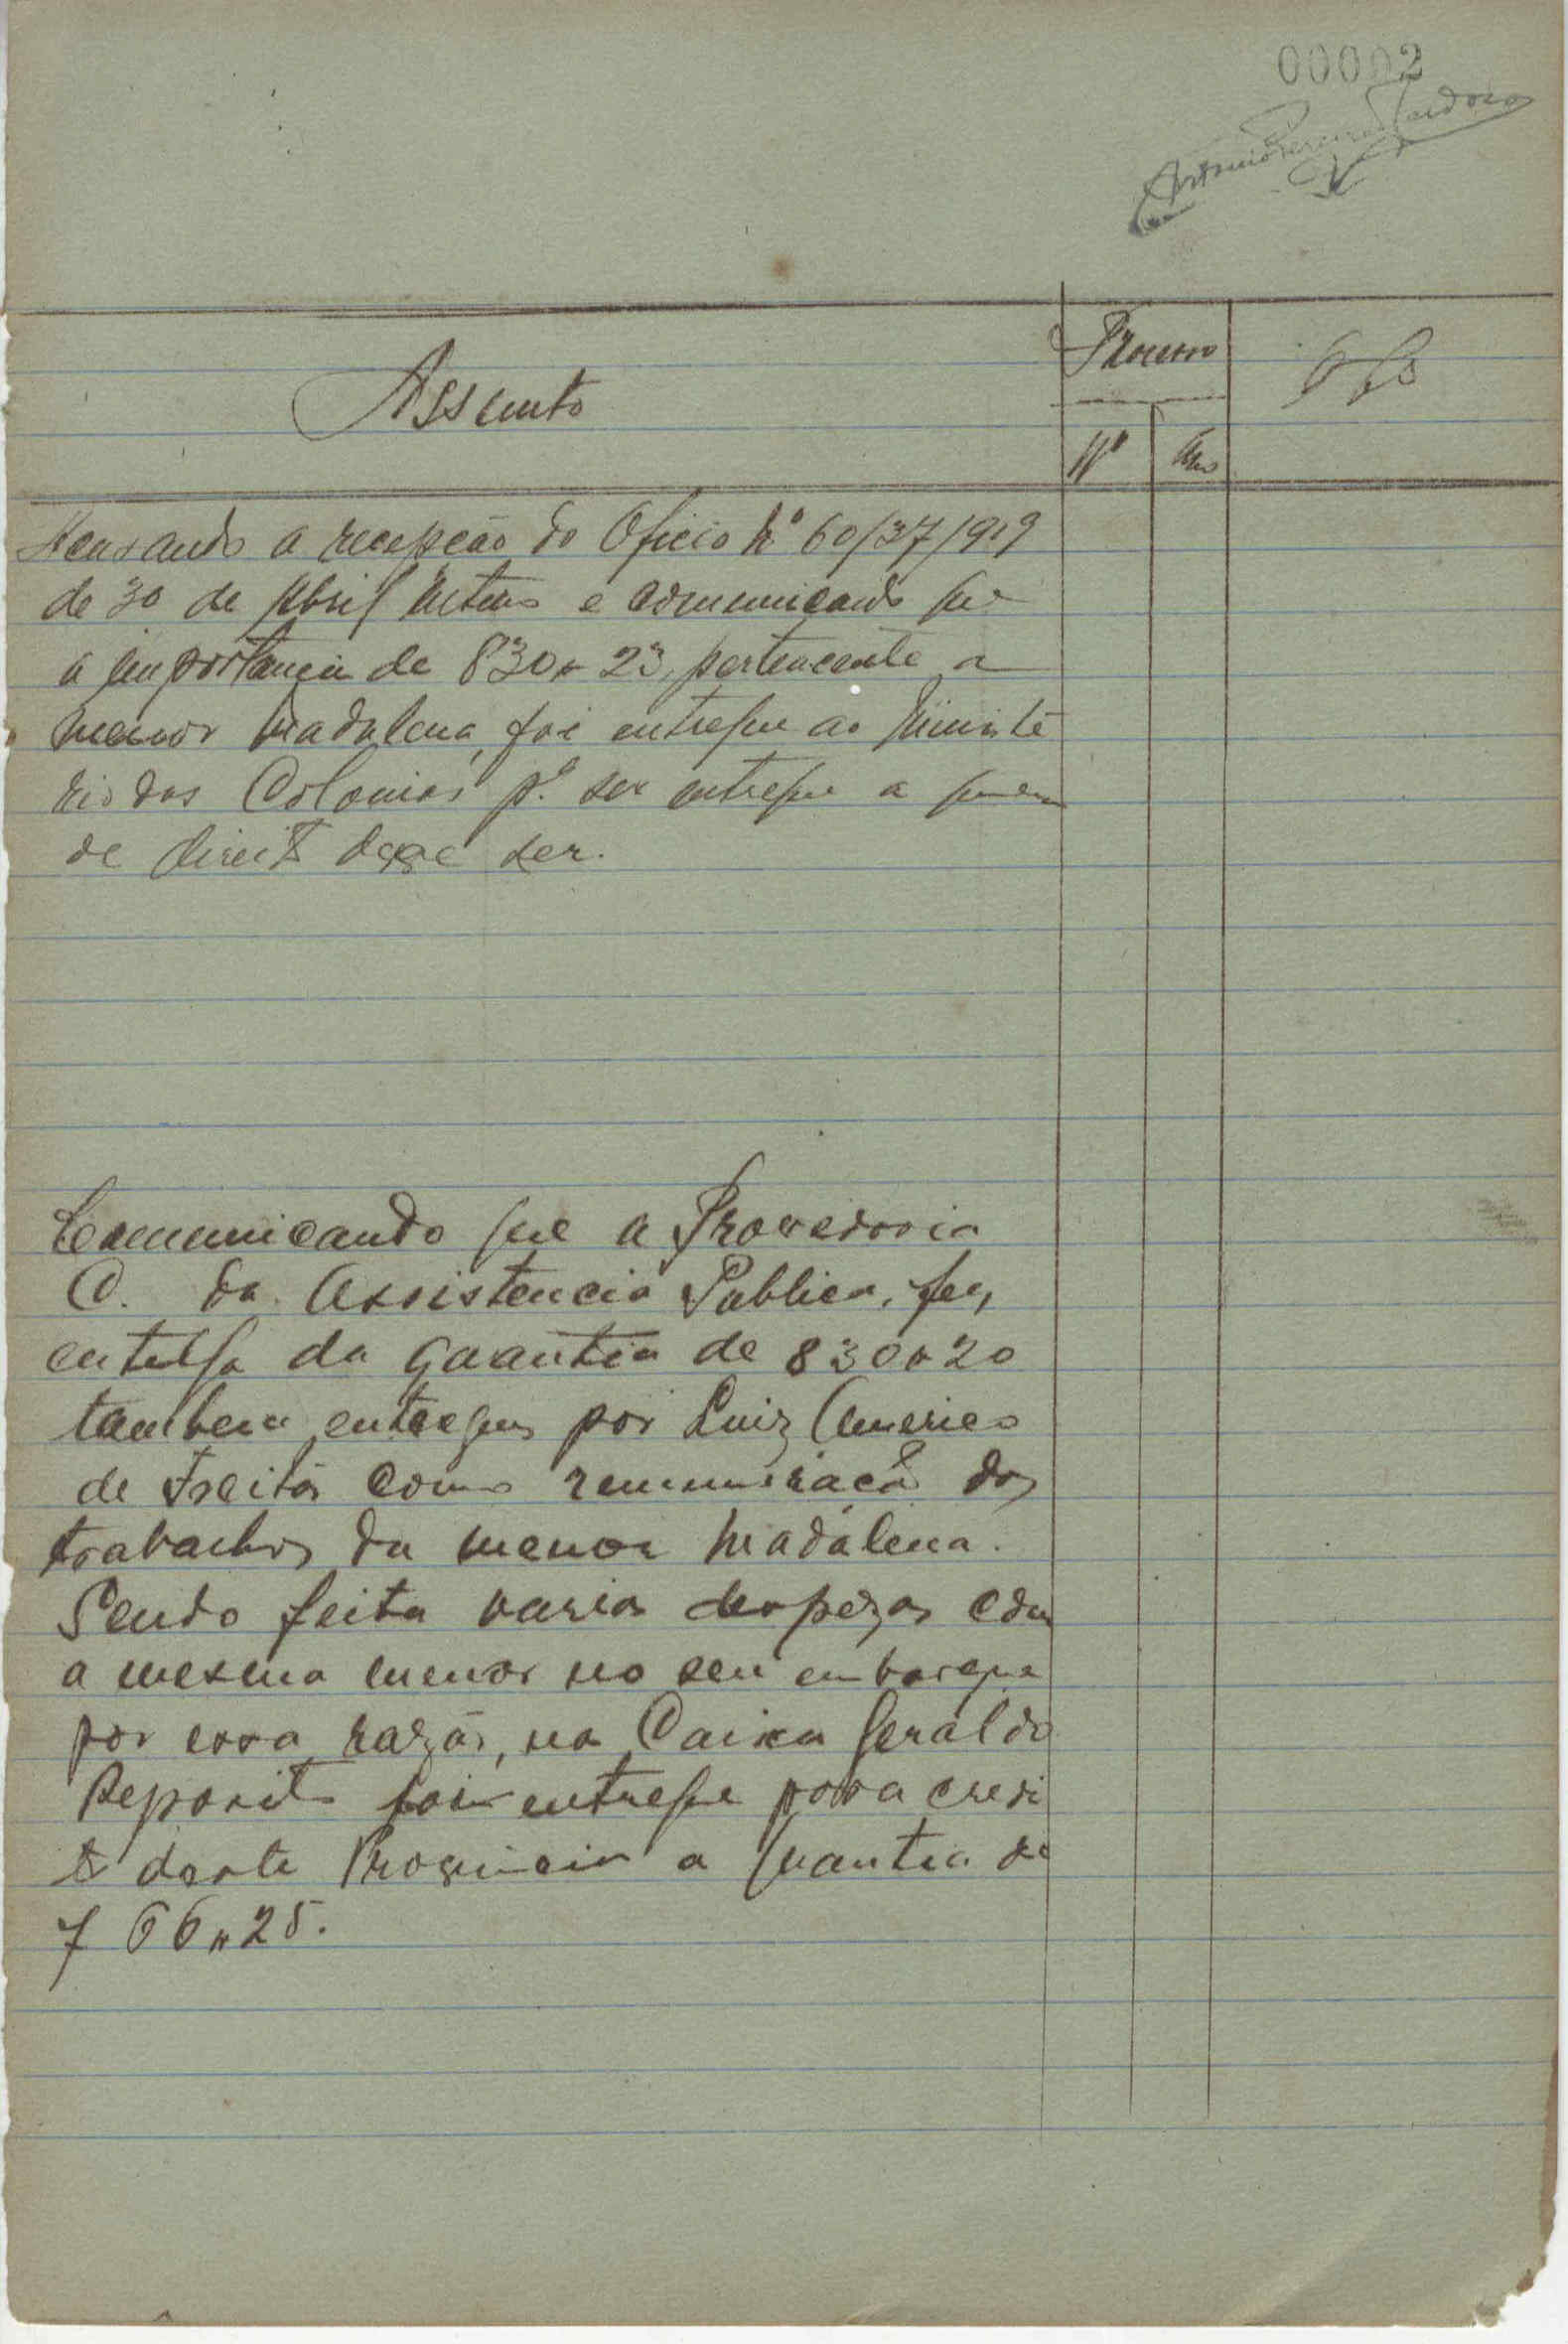 00002
Antonio Pereira Cardoso
Processo
Assunto
Nº Ano
Acusando a recepção do Oficio Nº 60/37/919
de 30 de Abril ultimo e comunicando que
a importancia de 830$23, pertencente a
menor Madalena, foi entregue ao Ministé
rio das Colonias pª ser entregue a quem
de direito deva ser.
Comunicando que a Provedoria
C. da Assistencia Publica, fez
entrega da quantia de 830$20
tambem entregue por Luiz Americo
de Freitas como remuneração dos
trabalhos da menor Madalena.
Sendo feita varias despezas com
a mesma menor no seu embarque
por essa razão, na Caixa Geral do
Deposito foi entregue para credi
to desta Provincia a quantia de
766$25.